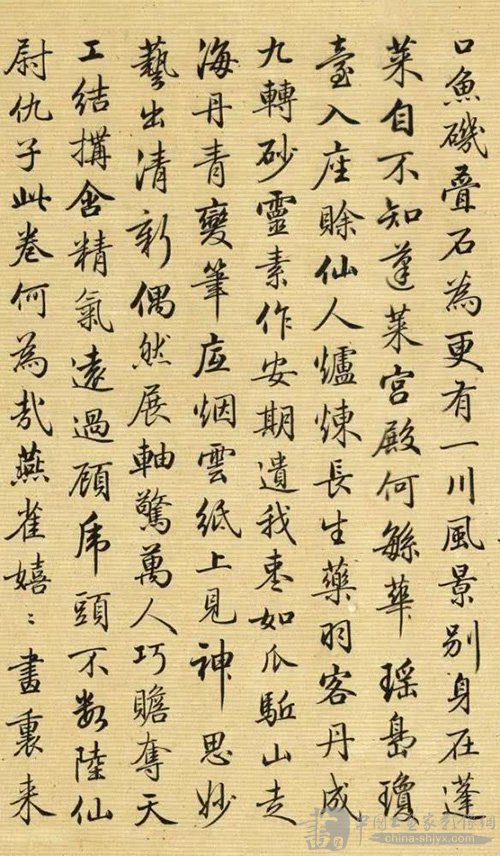 口魚磯疊石為更有一川風景别身在蓬
萊自不知蓬萊宮殿何緐華瑶島瓊
臺入座賒仙人爐煉長生藥羽客丹成
九轉砂靈素作安期遺我棗如瓜駈山走
海丹青變筆底烟雲紙上見神思妙
藝出清新偶然展軸驚萬人巧瞻奪天
工結搆含精氣遠過顧虎頭不数陸仙
尉仇子此卷何為哉燕雀嬉〻畫裏来
china-shjyx.com